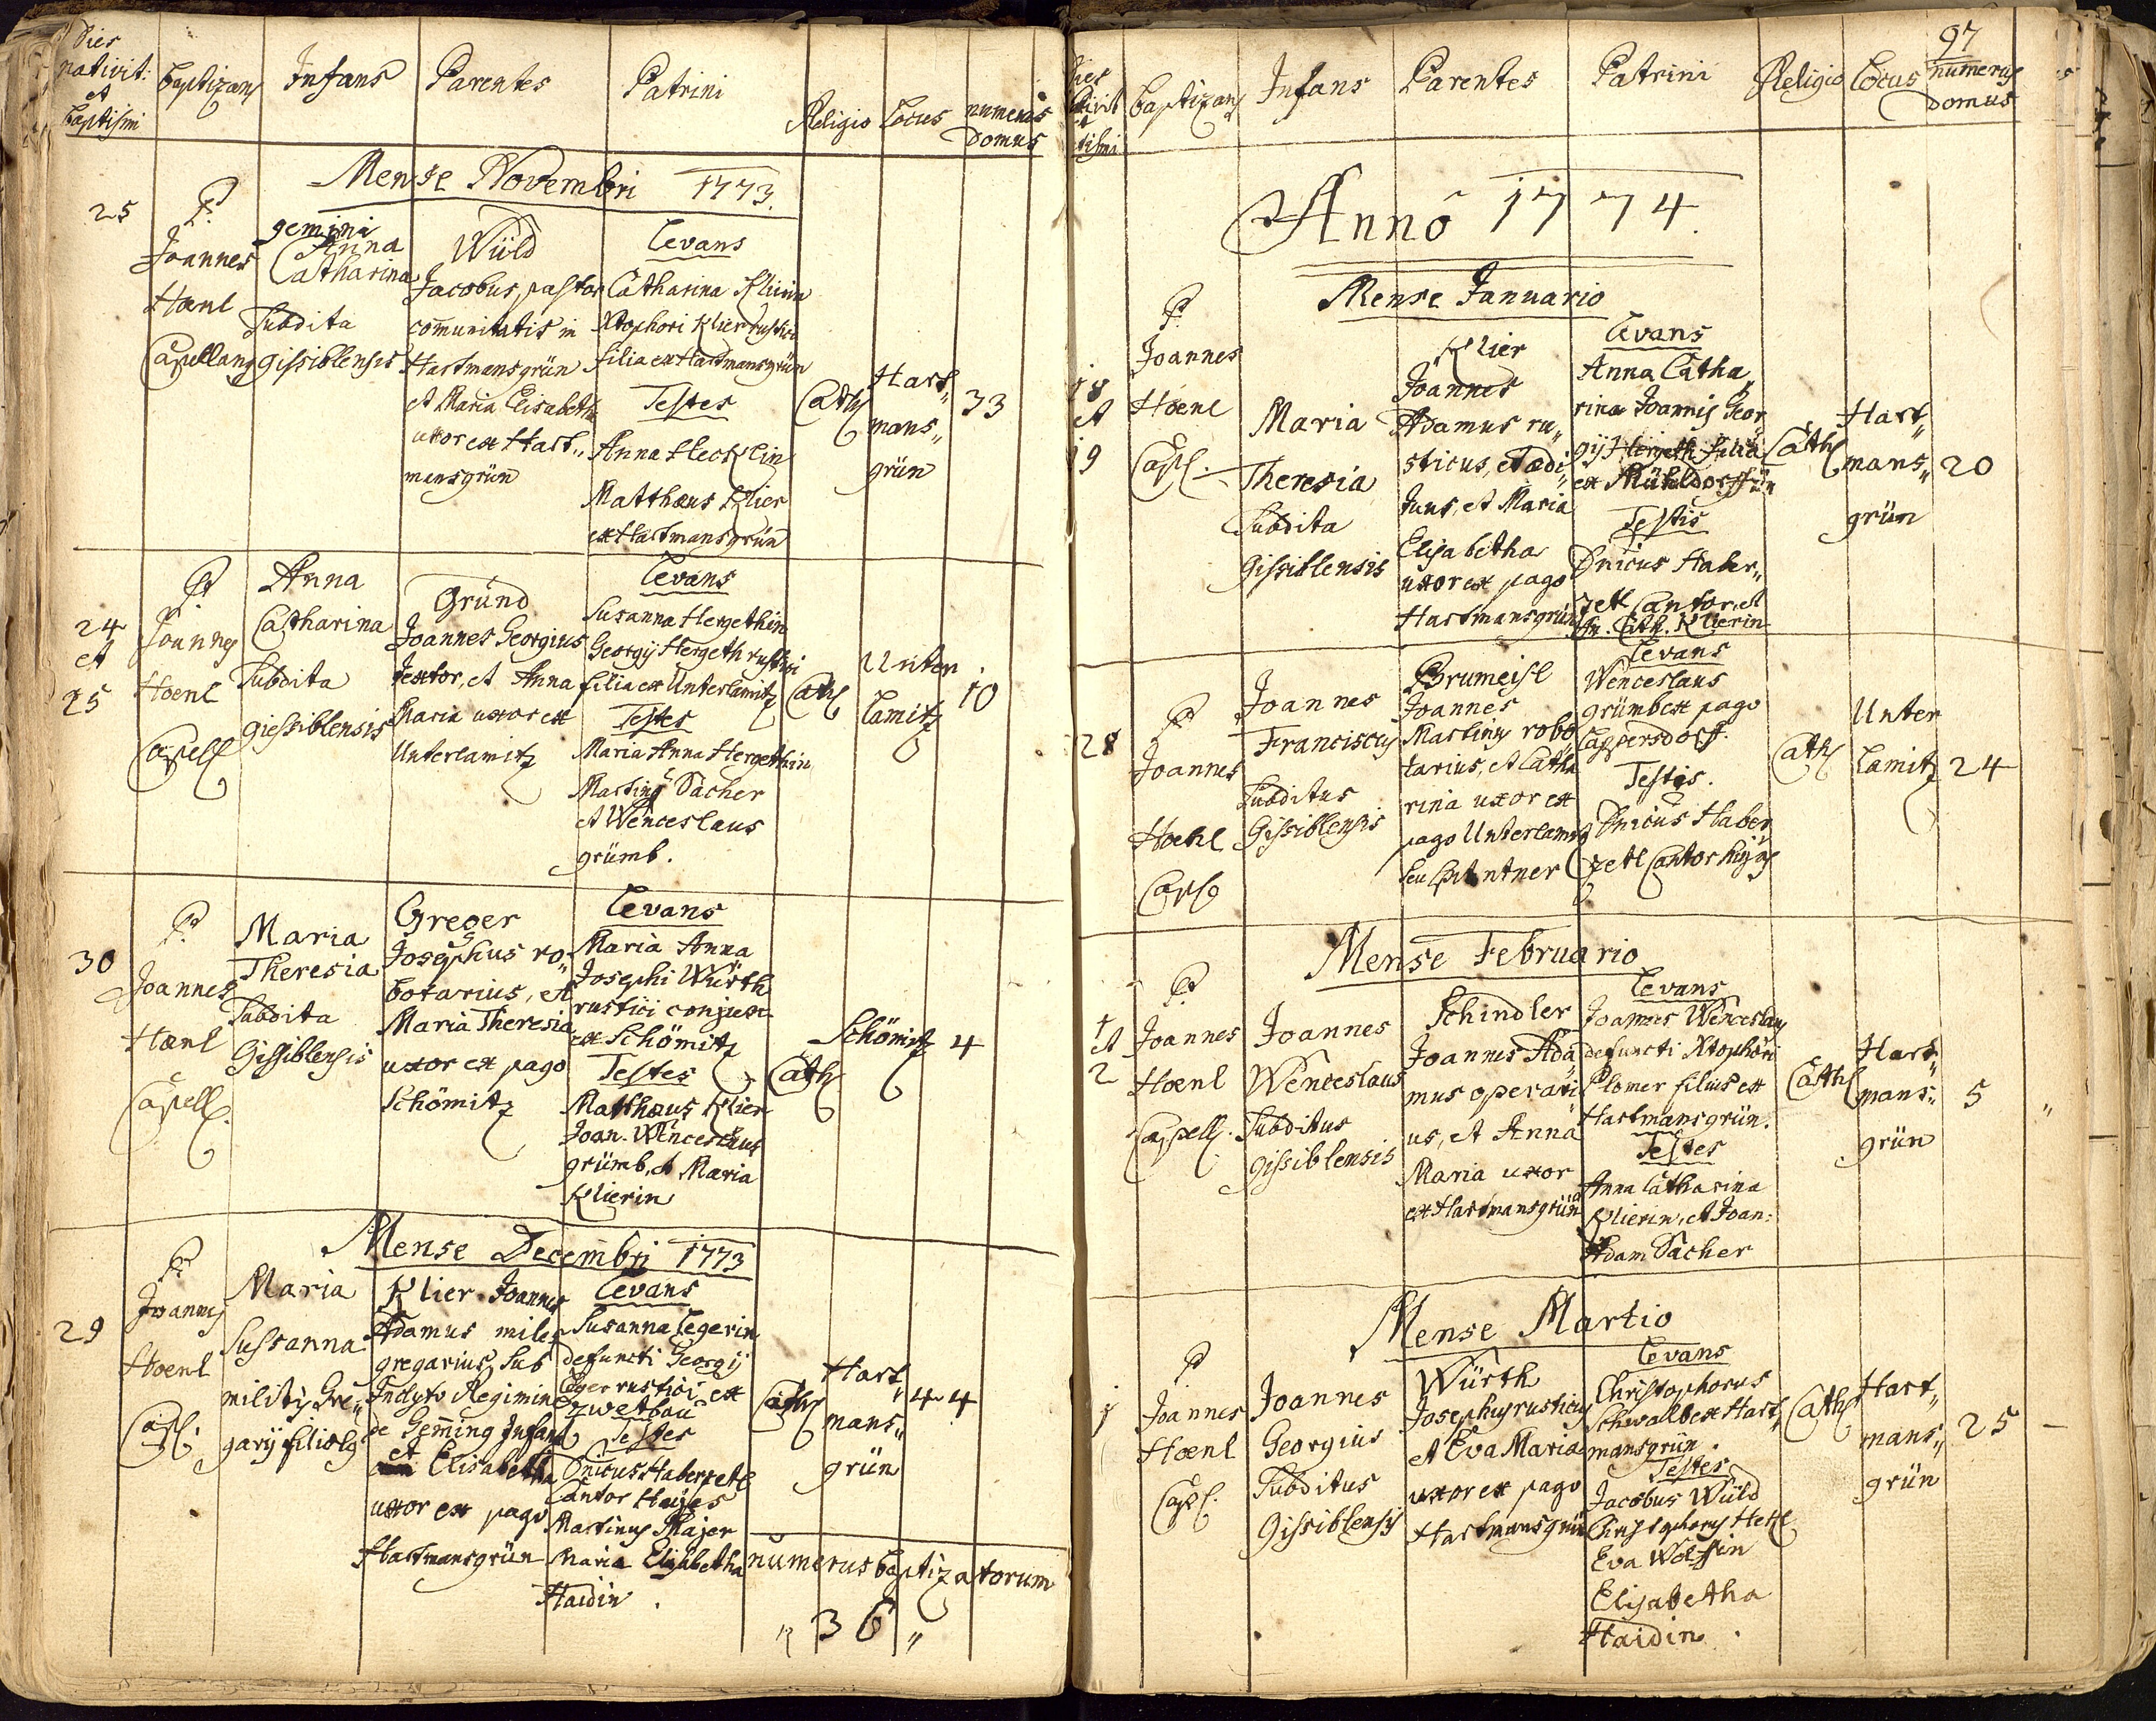 Dies
nativit:
et
Baptismi
Baptizans
Infans
Parentes
Patrini
Religio
Locus
numerus
Domus
Mense Novembri 1773.
25
P.
Joannes
Hoenl
Capellang
gemini
Anna
Catharina
Subdita
Gissiblensis
Wüld
Jacobus, pastor
com̄unitatis in
Hartmansgrün
et Maria Elisabetha
uxor ex Hart„
mansgrün
Levans
Catharina Klierin
Xtophori Klier rustici
filia ex Hartmansgrün
Testes
Anna Hecklin
Matthæus Klier
ex Hartmansgrün
Cath
Hart„
mans„
grün
33
24
et
25
P.
Joannes
Hoenl
Capell
Anna
Catharina
Subdita
giessiblensis
Gründ
Joannes Georgius
textor, et Anna
Maria uxor ex
Unterlamitz
Levans
Susanna Hergethin
Georgij Hergeth rustici
filia ex Unterlamitz
Testes
Maria Anna Hergethin
Martinus Sacher
et Wenceslaus
grümb.
Cath
Unter
Lamitz
10
30
P.
Joannes
Hoenl
Capell.
Maria
Theresia
Subdita
Gissiblensis
Greger
Josephus ro„
botarius, et
Maria Theresia
uxor ex pago
Schömitz
Levans
Maria Anna
Josephi Würth
rustici conjux
ex Schömitz
Testes
Matthæus Klier
Joan. Wenceslaus
grümb, et Maria
Klierin
Cath
Schömitz
4
Mense Decembri 1773
29
P.
Joannes
Hoenl
Capl.
Maria
Sussanna
militis Gre„
garij filiola
Klier Joannes
Adamus miles
gregarius sub
Inclyto Regimine
de Gem̄ing Infant
et Elisabetha
uxor ex pago
Hartmansgrün
Levans
Susanna Legerin
defuncti Georgij
Leger rustici ex
Zwetbau
Testes
Dn̄icus Haberzetl
Cantor Hujus
Martinus Majer
Maria Elisabetha
Haidin.
Cath
Hart„
mans„
grün
44
numerus baptizatorum
„ 36 „
97
Baptizans
Infans
Parentes
Patrini
Religio
Locus
numerus
Domus
Annô 1774.
Mense Januario
18
et
19
P.
Joannes
Hoenl
Capl.
Maria
Theresia
Subdita
Gissiblensis
Klier
Joannes
Adamus ru„
sticus, et ædi„
tuus, et Maria
Elisabetha
uxor ex pago
Hartmansgrün
Levans
Anna Catha„
rina Joannis Geor„
gij Hergeth filia
ex Mühldorff
Testis
Dn̄icus Haber„
zetl Cantor, et
An. Cath. Klierin
Cath
Hart„
mans„
grün
20
28
P.
Joannes
Hoenl
Capl
Joannes
Franciscus
Subditus
Gissiblensis
Brumeisl
Joannes
Martinus robo
tarius, et Catha
rina uxor ex
pago Unterlamitz
Levans
Wenceslaus
grümb ex pago
Lappersdorff.
Testis.
Dn̄icus Haber
zetl Cantor hujus
Cath
Unter
Lamitz
24
Mense Februario
1
et
2
P.
Joannes
Hoenl
Capell.
Joannes
Wenceslaus
Subditus
gissiblensis
Schindler
Joannes Ada„
mus operari„
us, et Anna
Maria uxor
ex Hartmansgrün
Levans
Joannes Wenceslaus
defuncti Xtophori
Plomer filius ex
Hartmansgrün.
Testes
Anna Catharina
Klierin, et Joan:
Adam Sacher
Cath
Hart„
mans„
grün
5
Mense Martio
1
P.
Joannes
Hoenl
Capl.
Joannes
Georgius
Subditus
Gissiblensis
Würth
Josephus rusticus
et Eva Maria
uxor ex pago
Hartmansgrün
Levans
Christophorus
Schwalb ex Hart„
mansgrün.
Testes
Jacobus Wüld
Christophorus Hekl
Eva Wolffin
Elisabetha
Haidin.
Cath
Hart„
mans„
grün
25